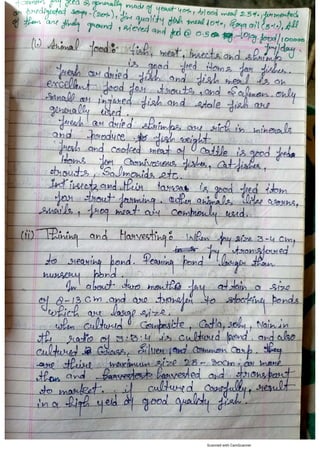 are generally made of yeast 40%, blood meal 25%, fermented
soya (20%), fine quality fish meal 10%, Soya oil (5%), All
of them are finely ground, sieved and fed @ 0.5 - 10g food/100000
fry/day.
(iv) Animal food :- Fish, meat, insects and shrimps
is good feed items for fishes.
fresh or dried fish and fish meal is an
excellent food for trouts, and Salmon. Only
small or injured fish and stale fish are
generally used.
fresh or dried shrimps are rich in minerals
and produce fish weight.
fresh and cooked meat of cattle is good feed
items for Carnivorous fishes, Cat fishes,
trouts, Salmonids etc.
insects and their larvae is good feed item
for trout farming. Other animals like worms,
snails, frog meat are commonly used.
(ii) Thining and Harvesting :- When fry size 3-4 cm,
fry transferred
to rearing pond. Rearing pond larger than
nursery pond.
In about two months fry attain a size
of 8-13 cm and are transfer to stocking ponds
which are large size.
When cultured Composite, Catla, rohu, Nain in
the ratio of 3:3:4 is cultured pond, and also
cultured Grass, silver and Common carp. they
are thire maximum size 25-30cm, or more
then and harvested and transport
to market. if cultured carefully, result
in a high yeild of good quality fish.
Scanned with CamScanner